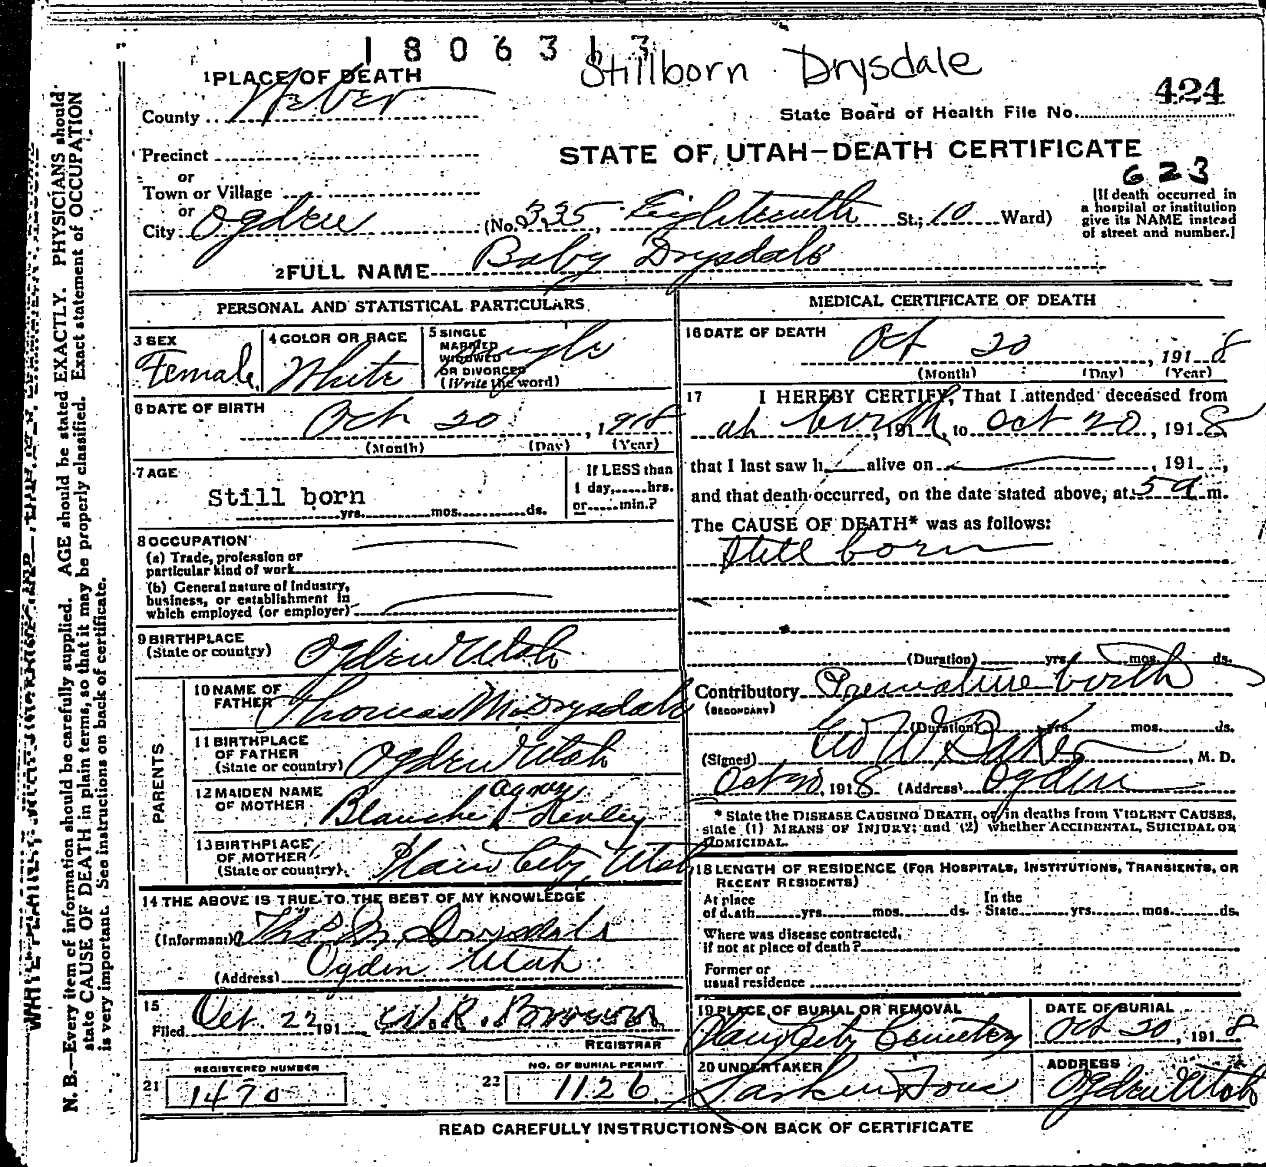 1806313
Stillborn Drysdale
1 PLACE OF DEATH
424
County Weber
State Board of Health File No.
Precinct
STATE OF UTAH—DEATH CERTIFICATE
or
623
Town or Village
[If death occurred in a hospital or institution give its NAME instead of street and number.]
or
City Ogden (No. 335, Eighteenth St.; 10 Ward)
2 FULL NAME Baby Drysdale
PERSONAL AND STATISTICAL PARTICULARS
3 SEX
Female
4 COLOR OR RACE
White
5 SINGLE
MARRIED
WIDOWED
OR DIVORCED
(Write the word)
Single
6 DATE OF BIRTH
Oct 20, 1918
(Month) (Day) (Year)
7 AGE
Still born
yrs. mos. ds.
If LESS than
1 day, hrs.
or min.?
8 OCCUPATION
(a) Trade, profession or
particular kind of work
(b) General nature of Industry,
business, or establishment in
which employed (or employer)
9 BIRTHPLACE
(State or country)
Ogden Utah
PARENTS
10 NAME OF
FATHER
Thomas M. Drysdale
11 BIRTHPLACE
OF FATHER
(State or country)
Ogden Utah
12 MAIDEN NAME
OF MOTHER
Blanche Agnes
13 BIRTHPLACE
OF MOTHER
(State or country)
Plain City, Utah
14 THE ABOVE IS TRUE TO THE BEST OF MY KNOWLEDGE
(Informant) Thos M. Drysdale
(Address) Ogden Utah
15
Filed Oct. 22, 191 W. R. Brown
REGISTRAR
21 REGISTERED NUMBER
1470
22 NO. OF BURIAL PERMIT
1126
MEDICAL CERTIFICATE OF DEATH
16 DATE OF DEATH
Oct 20, 1918
(Month) (Day) (Year)
17 I HEREBY CERTIFY, That I attended deceased from
at birth, 191 , to Oct 20, 1918
that I last saw h alive on , 191 ,
and that death occurred, on the date stated above, at 5 a m.
The CAUSE OF DEATH* was as follows:
Still born
(Duration) yrs. mos. ds.
Contributory Premature birth
(SECONDARY)
(Duration) yrs. mos. ds.
(Signed) Geo W Baker, M. D.
Oct 20, 1918 (Address) Ogden
* State the DISEASE CAUSING DEATH, or, in deaths from VIOLENT CAUSES,
state (1) MEANS OF INJURY; and (2) whether ACCIDENTAL, SUICIDAL OR
HOMICIDAL.
18 LENGTH OF RESIDENCE (FOR HOSPITALS, INSTITUTIONS, TRANSIENTS, OR
RECENT RESIDENTS)
At place
of death yrs. mos. ds.
In the
State yrs. mos. ds.
Where was disease contracted,
if not at place of death?
Former or
usual residence
19 PLACE OF BURIAL OR REMOVAL
Plain City Cemetery
DATE OF BURIAL
Oct 20, 1918
20 UNDERTAKER
Larkin Sons
ADDRESS
Ogden Utah
READ CAREFULLY INSTRUCTIONS ON BACK OF CERTIFICATE
N. B.—Every item of information should be carefully supplied. AGE should be stated EXACTLY. PHYSICIANS should
state CAUSE OF DEATH in plain terms, so that it may be properly classified. Exact statement of OCCUPATION
is very important. See instructions on back of certificate.